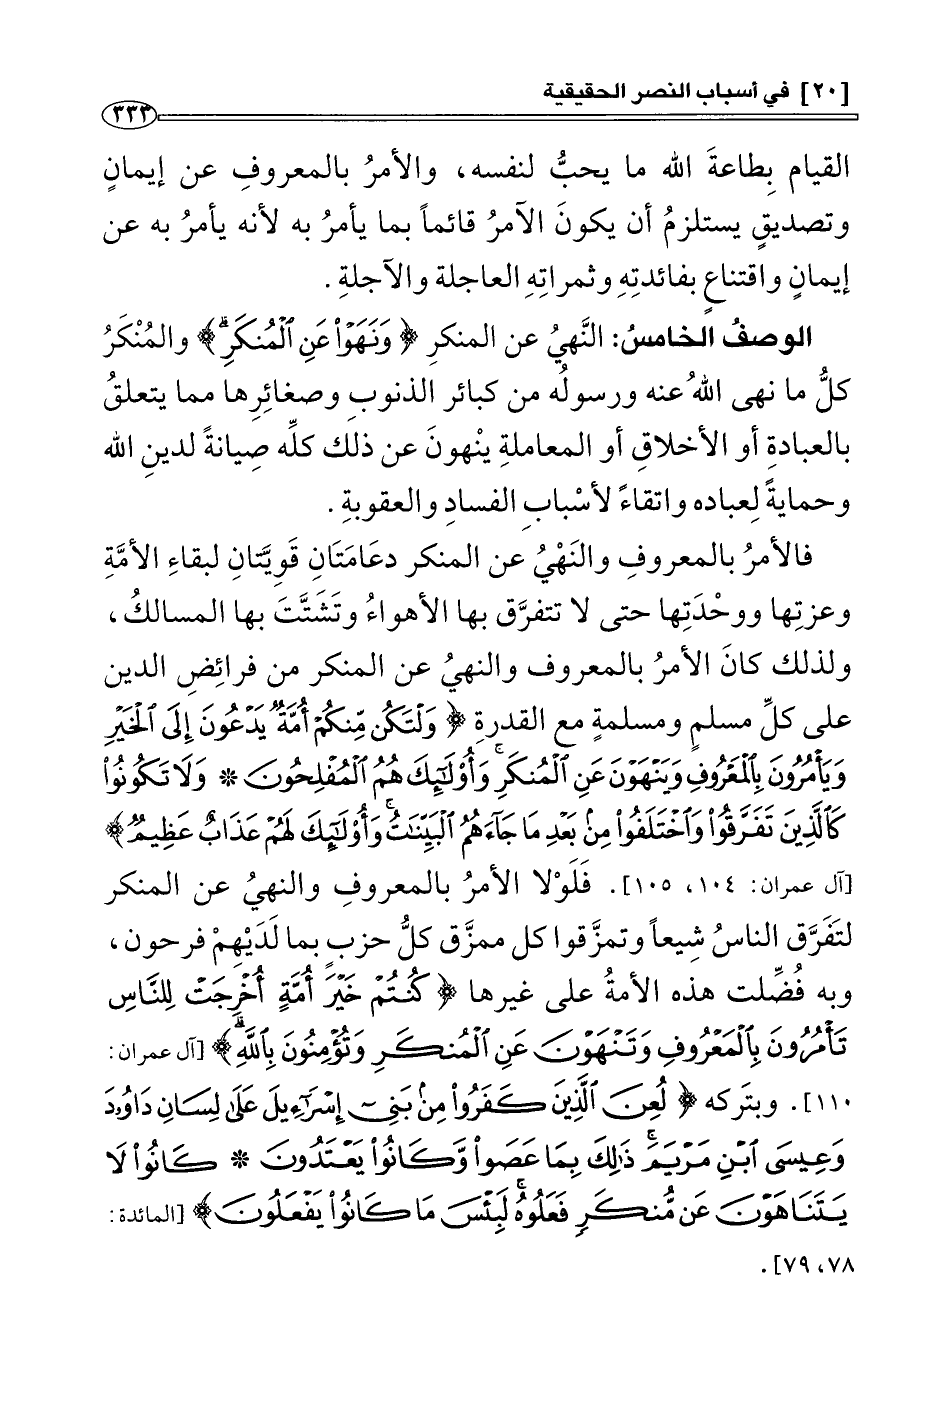 [٢٠] في أسباب النصر الحقيقية
٣٣٣
القيام بِطاعةَ الله ما يحبُّ لنفسه، والأمرُ بالمعروفِ عن إيمانٍ
وتصديقٍ يستلزمُ أن يكونَ الآمرُ قائماً بما يأمرُ به لأنه يأمرُ به عن
إيمانٍ واقتناعٍ بفائدتِهِ وثمراتِهِ العاجلة والآجلةِ .
الوصفُ الخامسُ: النَّهيُ عن المنكرِ ﴿ وَنَهَوْاْ عَنِ ٱلْمُنكَرِۗ ﴾ والمُنْكَرُ
كلُّ ما نهى اللهُ عنه ورسولُه من كبائر الذنوبِ وصغائرِها مما يتعلقُ
بالعبادةِ أو الأخلاقِ أو المعاملةِ ينْهونَ عن ذلك كلِّه صِيانةً لدينِ الله
وحمايةً لِعباده واتقاءً لأسْبابِ الفسادِ والعقوبةِ .
فالأمرُ بالمعروفِ والنَهْيُ عن المنكر دعَامَتَانِ قَويَّتانِ لبقاءِ الأمَّةِ
وعزتِها ووحْدَتِها حتى لا تتفرَّق بها الأهواءُ وتَشَتَّتَ بها المسالكُ،
ولذلك كانَ الأمرُ بالمعروف والنهيُ عن المنكر من فرائِضِ الدين
على كلِّ مسلمٍ ومسلمةٍ مع القدرةِ ﴿ وَلْتَكُن مِّنكُمْ أُمَّةٌ يَدْعُونَ إِلَى ٱلْخَيْرِ
وَيَأْمُرُونَ بِٱلْمَعْرُوفِ وَيَنْهَوْنَ عَنِ ٱلْمُنكَرِۚ وَأُوْلَٰٓئِكَ هُمُ ٱلْمُفْلِحُونَ * وَلَا تَكُونُواْ
كَٱلَّذِينَ تَفَرَّقُواْ وَٱخْتَلَفُواْ مِنۢ بَعْدِ مَا جَآءَهُمُ ٱلْبَيِّنَٰتُۚ وَأُوْلَٰٓئِكَ لَهُمْ عَذَابٌ عَظِيمٌ ﴾
[آل عمران: ١٠٤، ١٠٥]. فَلَوْلا الأمرُ بالمعروفِ والنهيُ عن المنكر
لتَفَرَّق الناسُ شِيعاً وتمزَّقوا كل ممزَّق كلُّ حزبٍ بما لَدَيْهِمْ فرحون،
وبه فُضِّلت هذه الأمةُ على غيرها ﴿ كُنتُمْ خَيْرَ أُمَّةٍ أُخْرِجَتْ لِلنَّاسِ
تَأْمُرُونَ بِٱلْمَعْرُوفِ وَتَنْهَوْنَ عَنِ ٱلْمُنكَرِ وَتُؤْمِنُونَ بِٱللَّهِۗ ﴾ [آل عمران:
١١٠]. وبتَركه ﴿ لُعِنَ ٱلَّذِينَ كَفَرُواْ مِنۢ بَنِيٓ إِسْرَٰٓءِيلَ عَلَىٰ لِسَانِ دَاوُۥدَ
وَعِيسَى ٱبْنِ مَرْيَمَۚ ذَٰلِكَ بِمَا عَصَواْ وَّكَانُواْ يَعْتَدُونَ * كَانُواْ لَا
يَتَنَاهَوْنَ عَن مُّنكَرٍ فَعَلُوهُۚ لَبِئْسَ مَا كَانُواْ يَفْعَلُونَ ﴾ [المائدة:
٧٨، ٧٩].